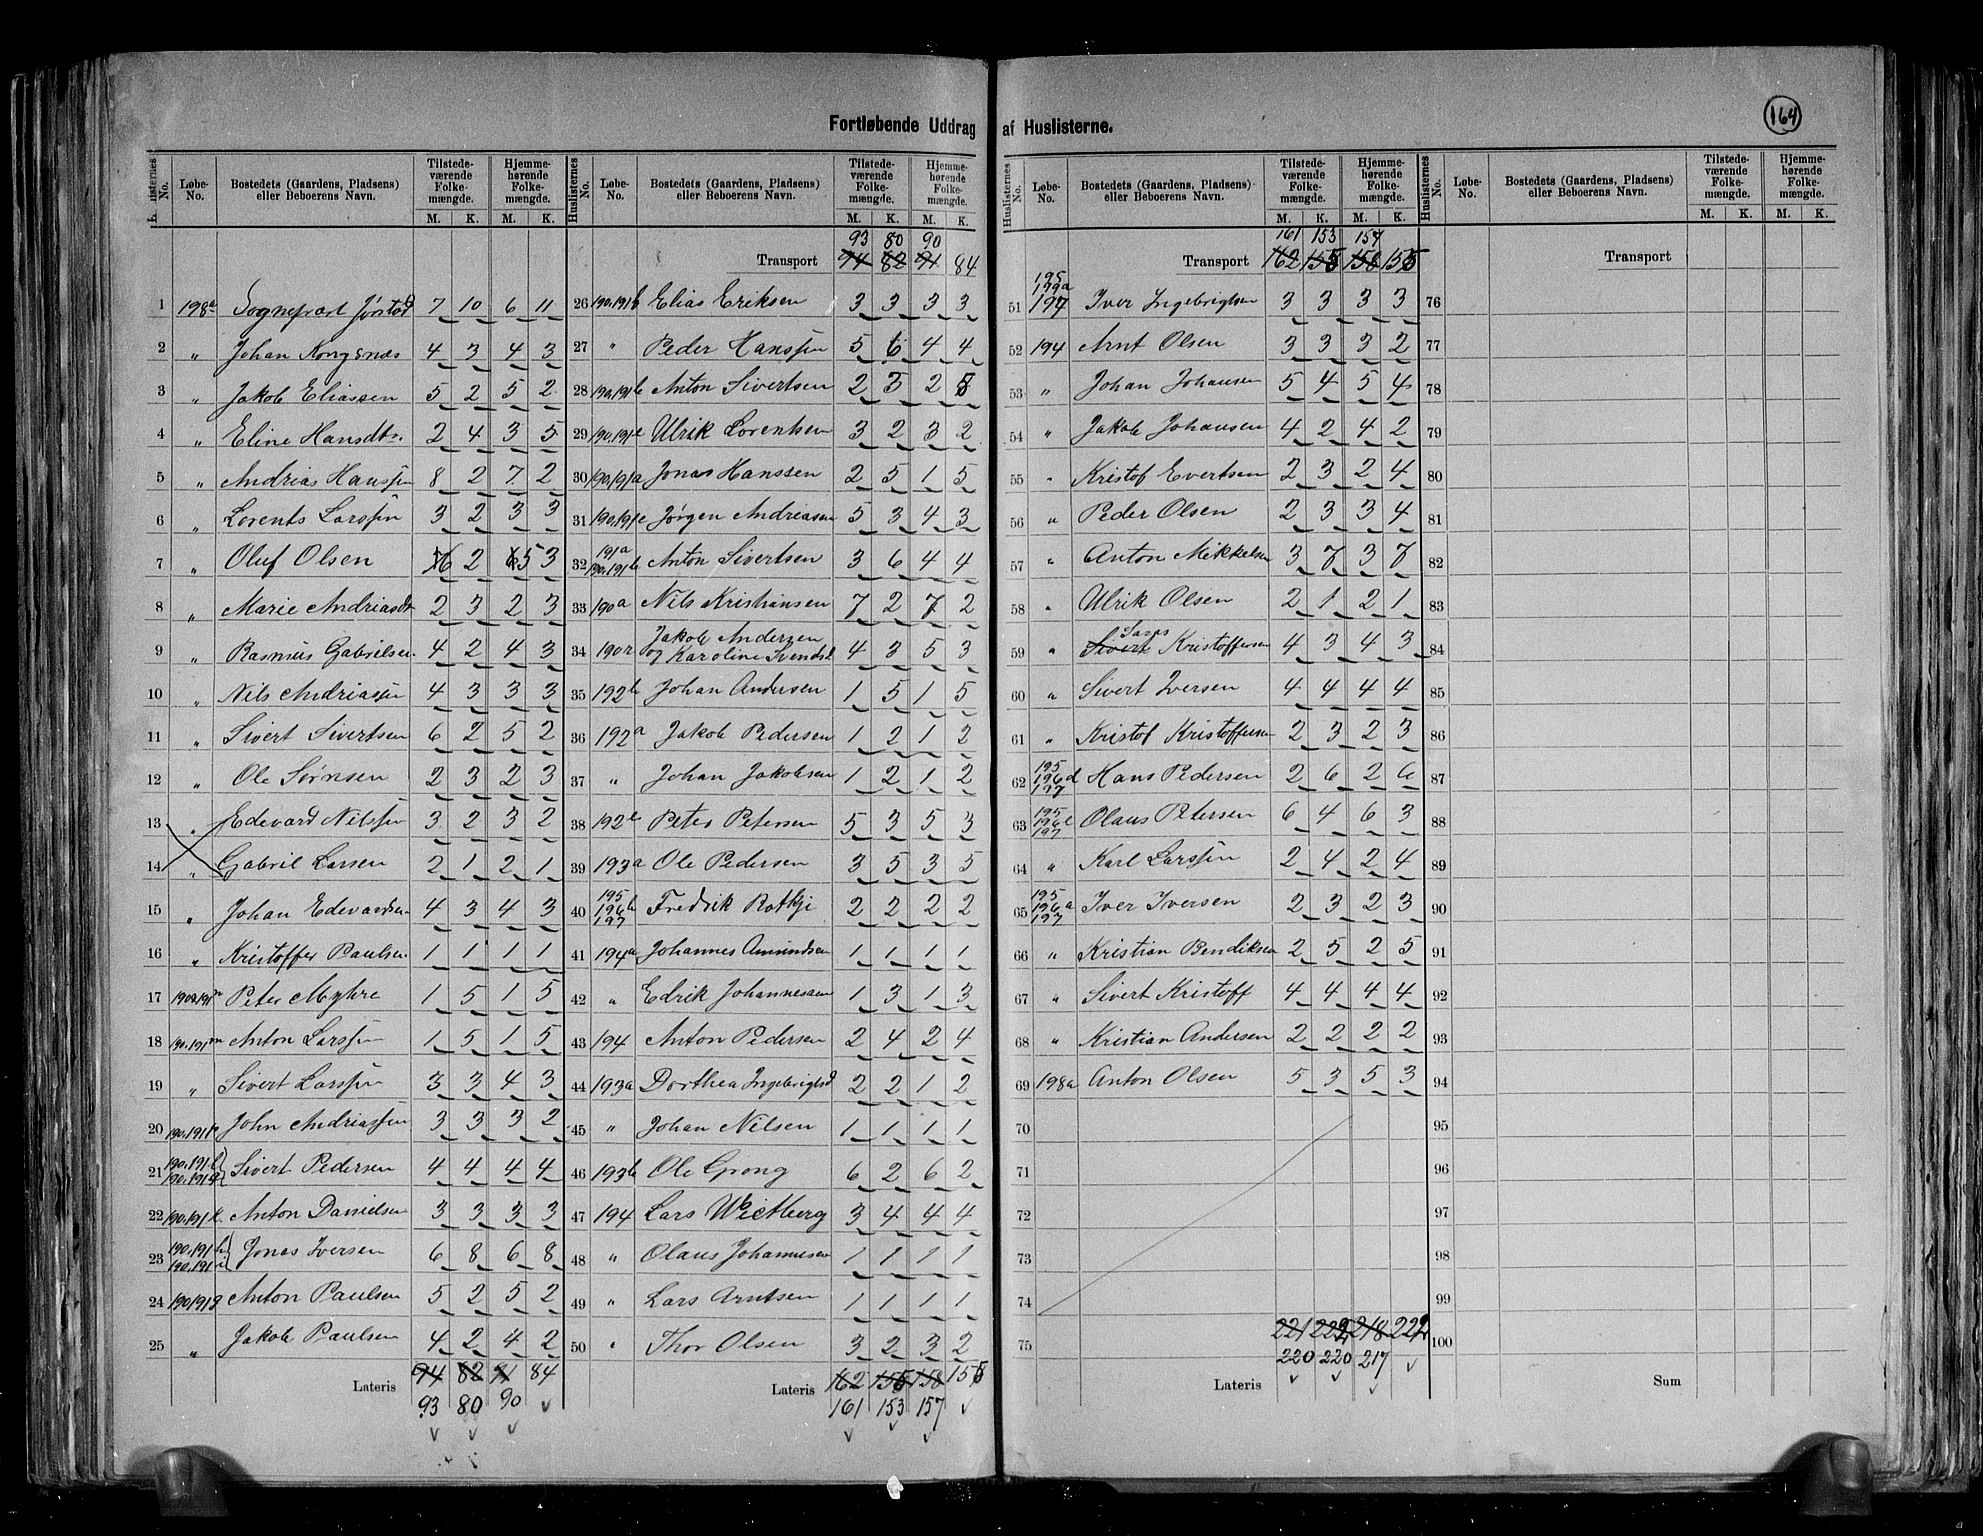 164
Fortløbende Uddrag af Huslisterne.
Huslisternes No. Løbe-No. Bostedets (Gaardens, Pladsens) eller Beboerens Navn. Tilstedeværende Folkemængde. M. K. Hjemmehørende Folkemængde. M. K.
1 198a Sognepræst Jørstad 7 10 6 11
2 " Johan Kongsnæs 4 3 4 3
3 " Jakob Eliassen 5 2 5 2
4 " Eline Hansdtr. 2 4 3 5
5 " Andrias Hanssen 8 2 7 2
6 " Lorents Larssen 3 2 3 3
7 " Oluf Olsen 6 2 5 3
8 " Marie Andriasdt 2 3 2 3
9 " Rasmus Gabrielsen 4 2 4 3
10 " Nils Andriassen 4 3 3 3
11 " Sivert Sivertsen 6 2 5 2
12 " Ole Sørnsen 2 3 2 3
13 " Edevard Nilssen 3 2 3 2
14 " Gabril Larsen 2 1 2 1
15 " Johan Edevardsen 4 3 4 3
16 " Kristoffer Paulsen 1 1 1 1
17 Peter Myhre 1 5 1 5
18 190.191m Anton Larssen 1 5 1 5
19 " Sivert Larssen 3 3 4 3
20 John Andriassen 3 3 3 2
21 Sivert Pedersen 4 4 4 4
22 Anton Danielsen 3 3 3 3
23 Jonas Iversen 6 8 6 8
24 190.191g Anton Paulsen 5 2 5 2
25 " Jakob Paulsen 4 2 4 2
94 82 91 84
Lateris
93 80 90
93 80 90
Transport 94 82 91 84
26 190.191b Elias Eriksen 3 3 3 3
27 " Peder Hanssen 5 6 4 4
28 190.191b Anton Sivertsen 2 3 2
29 190.191c Ulrik Lorentsen 3 2 3 2
30 190.191a Jonas Hanssen 2 5 1 5
31 190.191c Jørgen Andreasen 5 3 4 3
32 191a 190.191b Anton Sivertsen 3 6 4 4
33 190a Nils Kristiansen 7 2 7 2
34 Jakob Andersen og Karoline Svendsd. 4 3 5 3
35 192b Johan Andersen 1 5 1 5
36 192a Jakob Pedersen 1 2 1 2
37 " Johan Jakobsen 1 2 1 2
38 192b Peter Petersen 5 3 5 3
39 193a Ole Pedersen 3 5 3 5
40 195 196b 197 Fredrik Rotkje 2 2 2 2
41 194a Johannes Amundsen 1 1 1 1
42 " Edrik Johannesen 1 3 1 3
43 194 Anton Pedersen 2 4 2 4
44 193a Dorthea Ingebrigtsd 2 2 1 2
45 " Johan Nilsen 1 1 1 1
46 193b Ole Grong 6 2 6 2
47 194 Lars Wictberg 3 4 4 4
48 " Olaus Johannesen 1 1 1 1
49 " Lars Arntsen 1 1 1 1
50 " Thor Olsen 3 2 3 2
Lateris 162 155 158 155
161 153 157
161 153 157
Transport 162 155 158 155
51 195 199a 197 Iver Ingebrigtsen 3 3 3 3
52 194 Arnt Olsen 3 3 3 2
53 " Johan Johansen 5 4 5 4
54 " Jakob Johansen 4 2 4 2
55 " Kristof Evertsen 2 3 2 4
56 " Peder Olsen 2 3 3 4
57 " Anton Mikkelsen 3 7 3 7
58 " Ulrik Olsen 2 1 2 1
59 " Sivert Lars Kristoffersen 4 3 4 3
60 " Sivert Iversen 4 4 4 4
61 " Kristof Kristoffersen 2 3 2 3
62 195 196d 197 Hans Pedersen 2 6 2 6
63 195 196c 197 Olaus Petersen 6 4 6 3
64 " Karl Larssen 2 4 2 4
65 195 196a 197 Iver Iversen 2 3 2 3
66 " Kristian Bendiksen 2 5 2 5
67 " Sivert Kristoff 4 4 4 4
68 " Kristian Andersen 2 2 2 2
69 198a Anton Olsen 5 3 5 3
70
71
72
73
74
75
221 222 218 222
220 220 217
Lateris
Transport
76
77
78
79
80
81
82
83
84
85
86
87
88
89
90
91
92
93
94
95
96
97
98
99
100
Sum